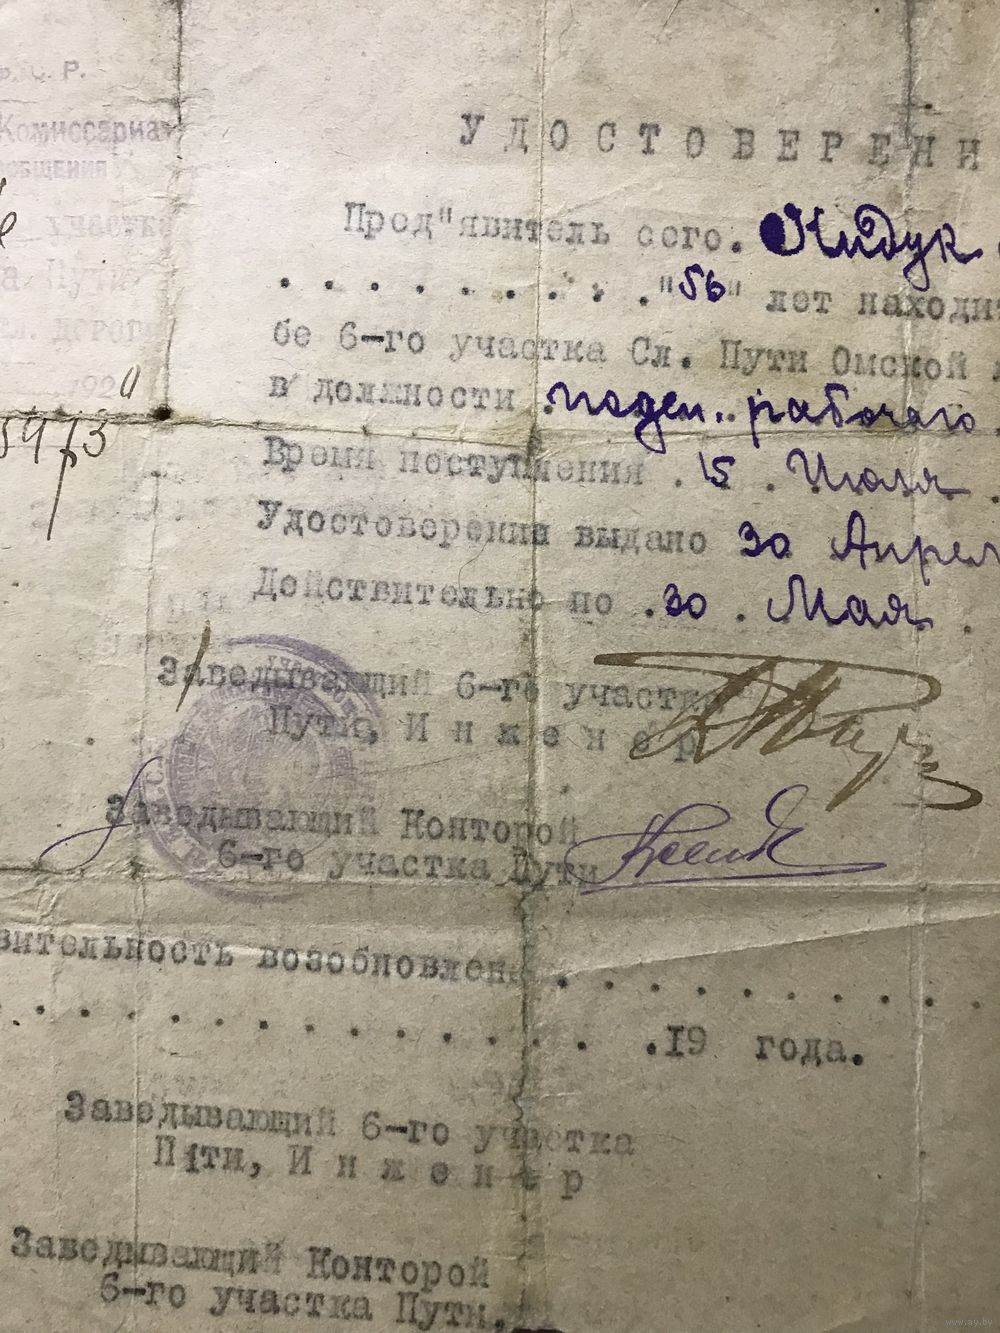 Р.
Комиссариа
общения
участк
а Пути
дорог
192
5973
УДОСТОВЕРЕНИ
Пред"явитель сего. Кидук
. . . . . . . . . "56" лет находи
бе 6-го участка Сл. Пути Омской
в должности поден. рабочаго
Время поступления . 15 . Июля .
Удостоверение выдано 30 Апрел
Действительно по . 30 . Мая .
Заведывающий 6-го участка
Пути, Инженер
Заведывающий Конторой
6-го участка Пути
вительность возобновлена . . . . . . . . . .
. . . . . . . . . . . . . . .19 года.
Заведывающий 6-го участка
Пути, Инженер
Заведывающий Конторой
6-го участка Пути,
www.ay.by